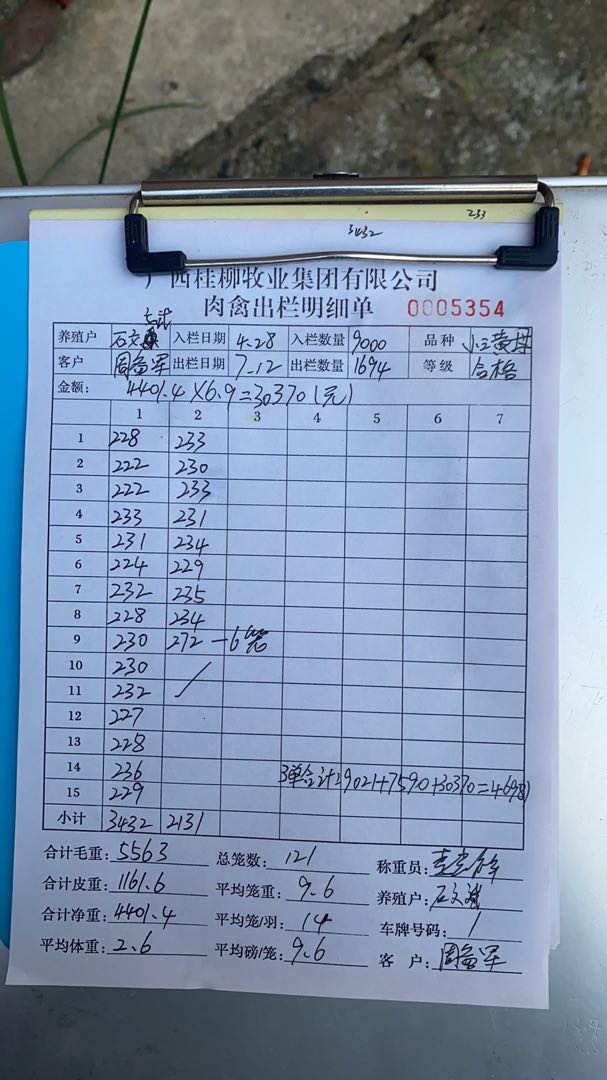 233
3432
广西桂柳牧业集团有限公司
肉禽出栏明细单 0005354
养殖户 石文 入栏日期 4.28 入栏数量 9000 品种
客户 周益军 出栏日期 7.12 出栏数量 1694 等级 合格
金额: 4401.4×6.9=30370(元)
1 2 3 4 5 6 7
1 228 233
2 222 230
3 222 233
4 233 231
5 231 234
6 224 229
7 232 235
8 228 234
9 230 272 —6笼
10 230
11 232
12 227
13 228
14 236 3单合计:9021+7590+30370=46981
15 229
小计 3432 2131
合计毛重: 5563 总笼数: 121 称重员:
合计皮重: 1161.6 平均笼重: 9.6 养殖户: 石文
合计净重: 4401.4 平均笼/羽: 14 车牌号码: 1
平均体重: 2.6 平均磅/笼: 9.6 客 户: 周益军